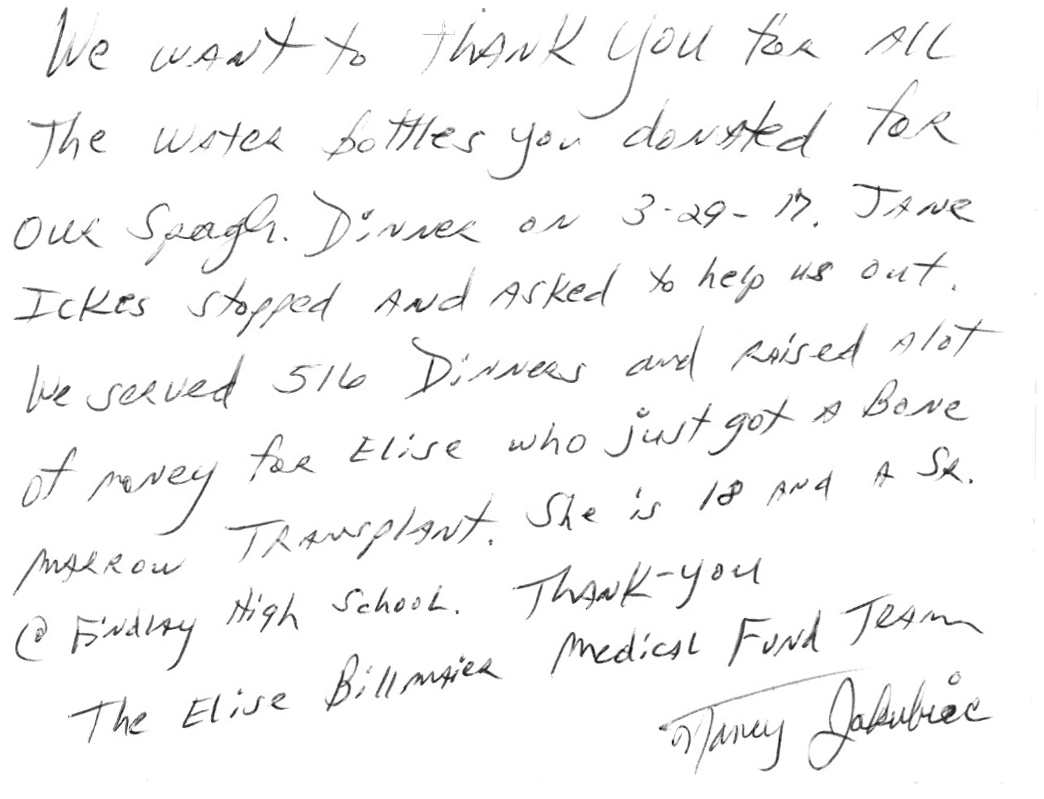 We want to thank you for all
The water bottles you donated for
our Spagh. Dinner on 3-29-17. Jane
Ickes stopped and asked to help us out.
We served 516 Dinners and raised alot
of money for Elise who just got a Bone
marrow Transplant. She is 18 and a Sr.
@ Findlay High School. Thank-you
The Elise Billmaier Medical Fund Team
Nancy Jakubiec